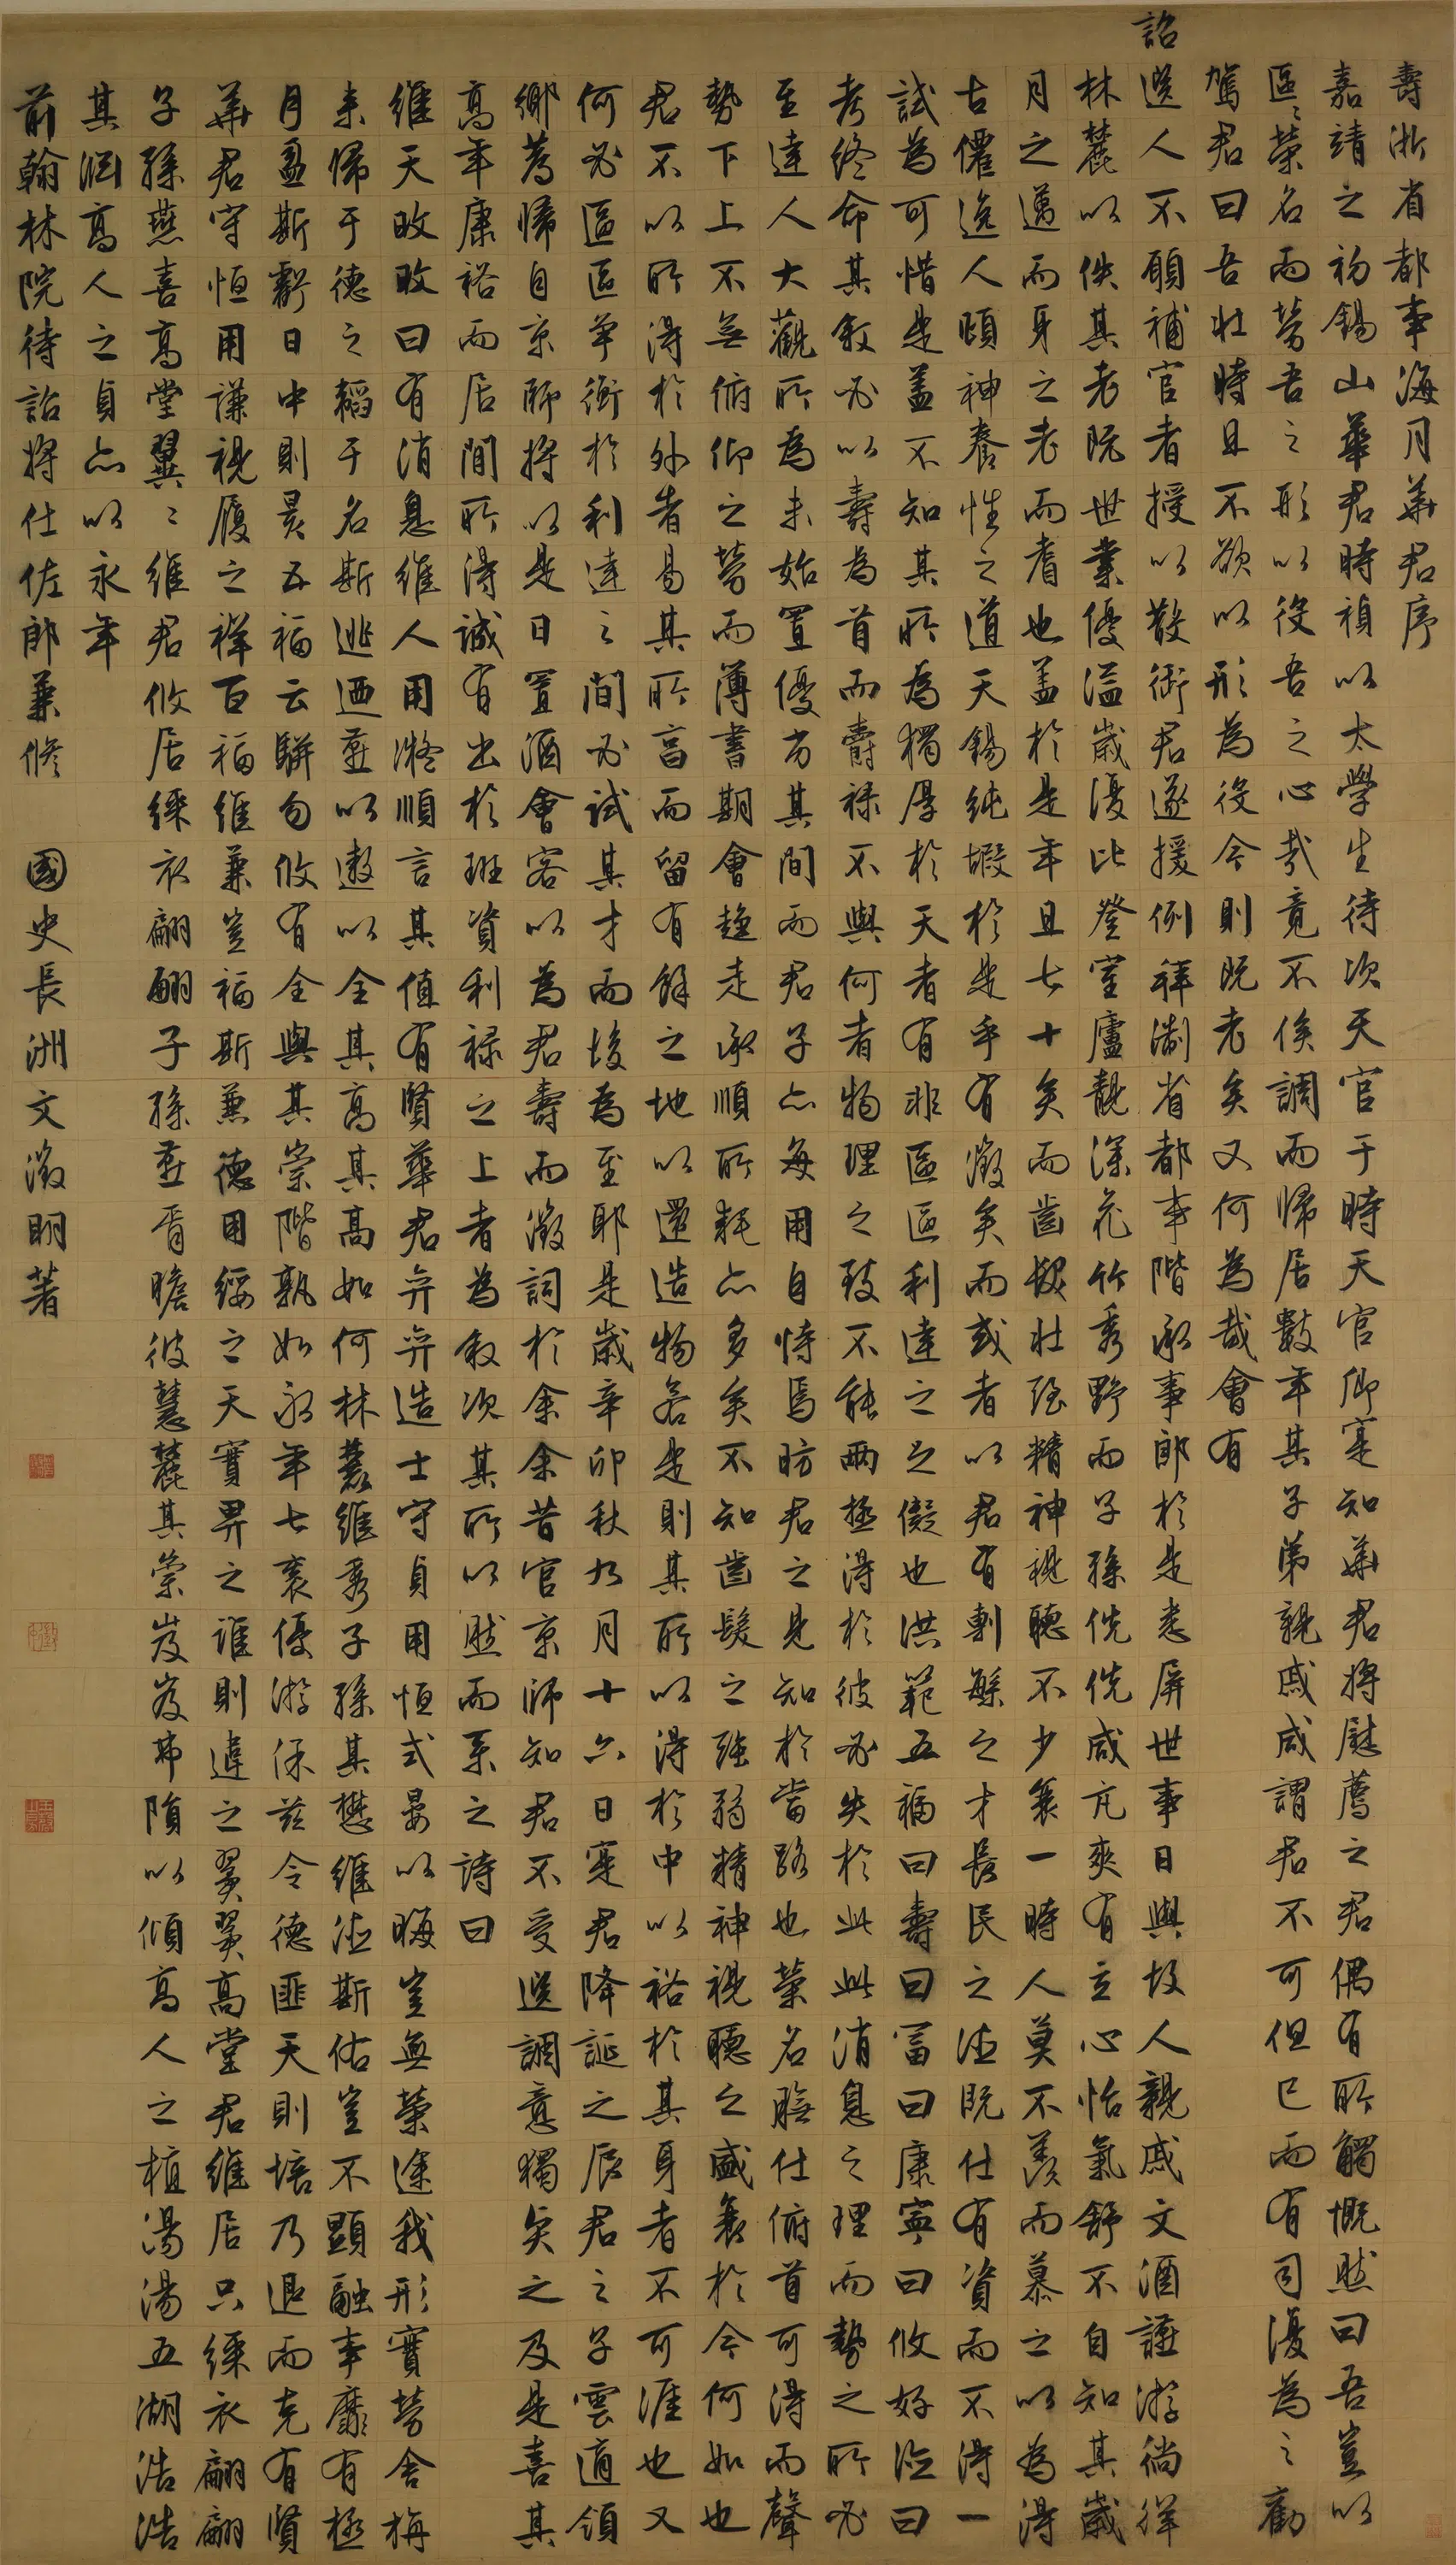 壽浙省都事海月華君序
嘉靖之初錫山華君時禎以太學生待次天官于時天官卿寔知華君將慰薦之君偶有所觸慨然曰吾豈以
區區榮名而勞吾之形以役吾之心哉竟不俟調而歸居數年其子弟親戚咸謂君不可但已而有司復為之勸
駕君曰吾壯時且不欲以形為役今則既老矣又何為哉會有
詔選人不願補官者授以散銜君遂援例拜淛省都事階承事郎於是悉屏世事日與故人親戚文酒讌游徜徉
林麓以佚其老既世業優溢歲復比登室廬靚深花竹秀野而子孫侁侁咸亢爽有立心怡氣舒不自知其歲
月之邁而身之老而耆也蓋於是年且七十矣而齒髮壯強精神視聽不少衰一時人莫不羨而慕之以為得
古僊逸人頤神養性之道天錫純嘏於是乎有徵矣而或者以君有剸繇之才長民之德既仕有資而不得一
試為可惜是蓋不知其所為獨厚於天者有非區區利達之之儗也洪範五福曰壽曰富曰康寧曰攸好德曰
考終命其敘必以壽為首而爵祿不與何者物理之致不能兩極得於彼必失於此此消息之理而勢之所必
至達人大觀所為未始置優劣其間而君子亦每用自恃焉昉君之見知於當路也榮名膴仕俯首可得而聲
勢下上不無俯仰之勞而薄書期會趨走承順所耗亦多矣不知齒髮之強弱精神視聽之盛衰於今何如也
君不以所得於外者易其所富而留有餘之地以還造物若是則其所以得於中以裕於其身者不可涯也又
何必區區爭銜於利達之間必試其才而後為至耶是歲辛卯秋九月十六日寔君降誕之辰君之子雲適領
鄉薦歸自京師將以是日置酒會客以為君壽而徵詞於余余昔官京師知君不受選調意獨矣之及是喜其
高年康裕而居閒所得誠有出於班資利祿之上者為敘次其所以然而系之詩曰
維天畋畋曰有消息維人用凝順言其值有賢華君弁弁造士守貞用恒式晏以晦豈無榮途我形實勞舍旃
來歸于德之韜于名斯逃迺燕以遨以全其高其高如何林麓維秀子孫其懋維德斯佑豈不顯融事靡有極
月盈斯虧日中則昃五福云駢匄攸有全與其崇階孰如永年七袠優游保茲令德匪天則培乃退而克有賢
華君守恒用謙視履之祥百福維兼豈福斯兼德用綏之天實畀之誰則違之翼翼高堂君維居只綵衣翩翩
子孫燕喜高堂翼翼維君攸居綵衣翩翩子孫燕胥瞻彼慧麓其崇岌岌弗隕以傾高人之植湯湯五湖浩浩
其淵高人之貞亦以永年
前翰林院待詔將仕佐郎兼修 國史長洲文徵明著